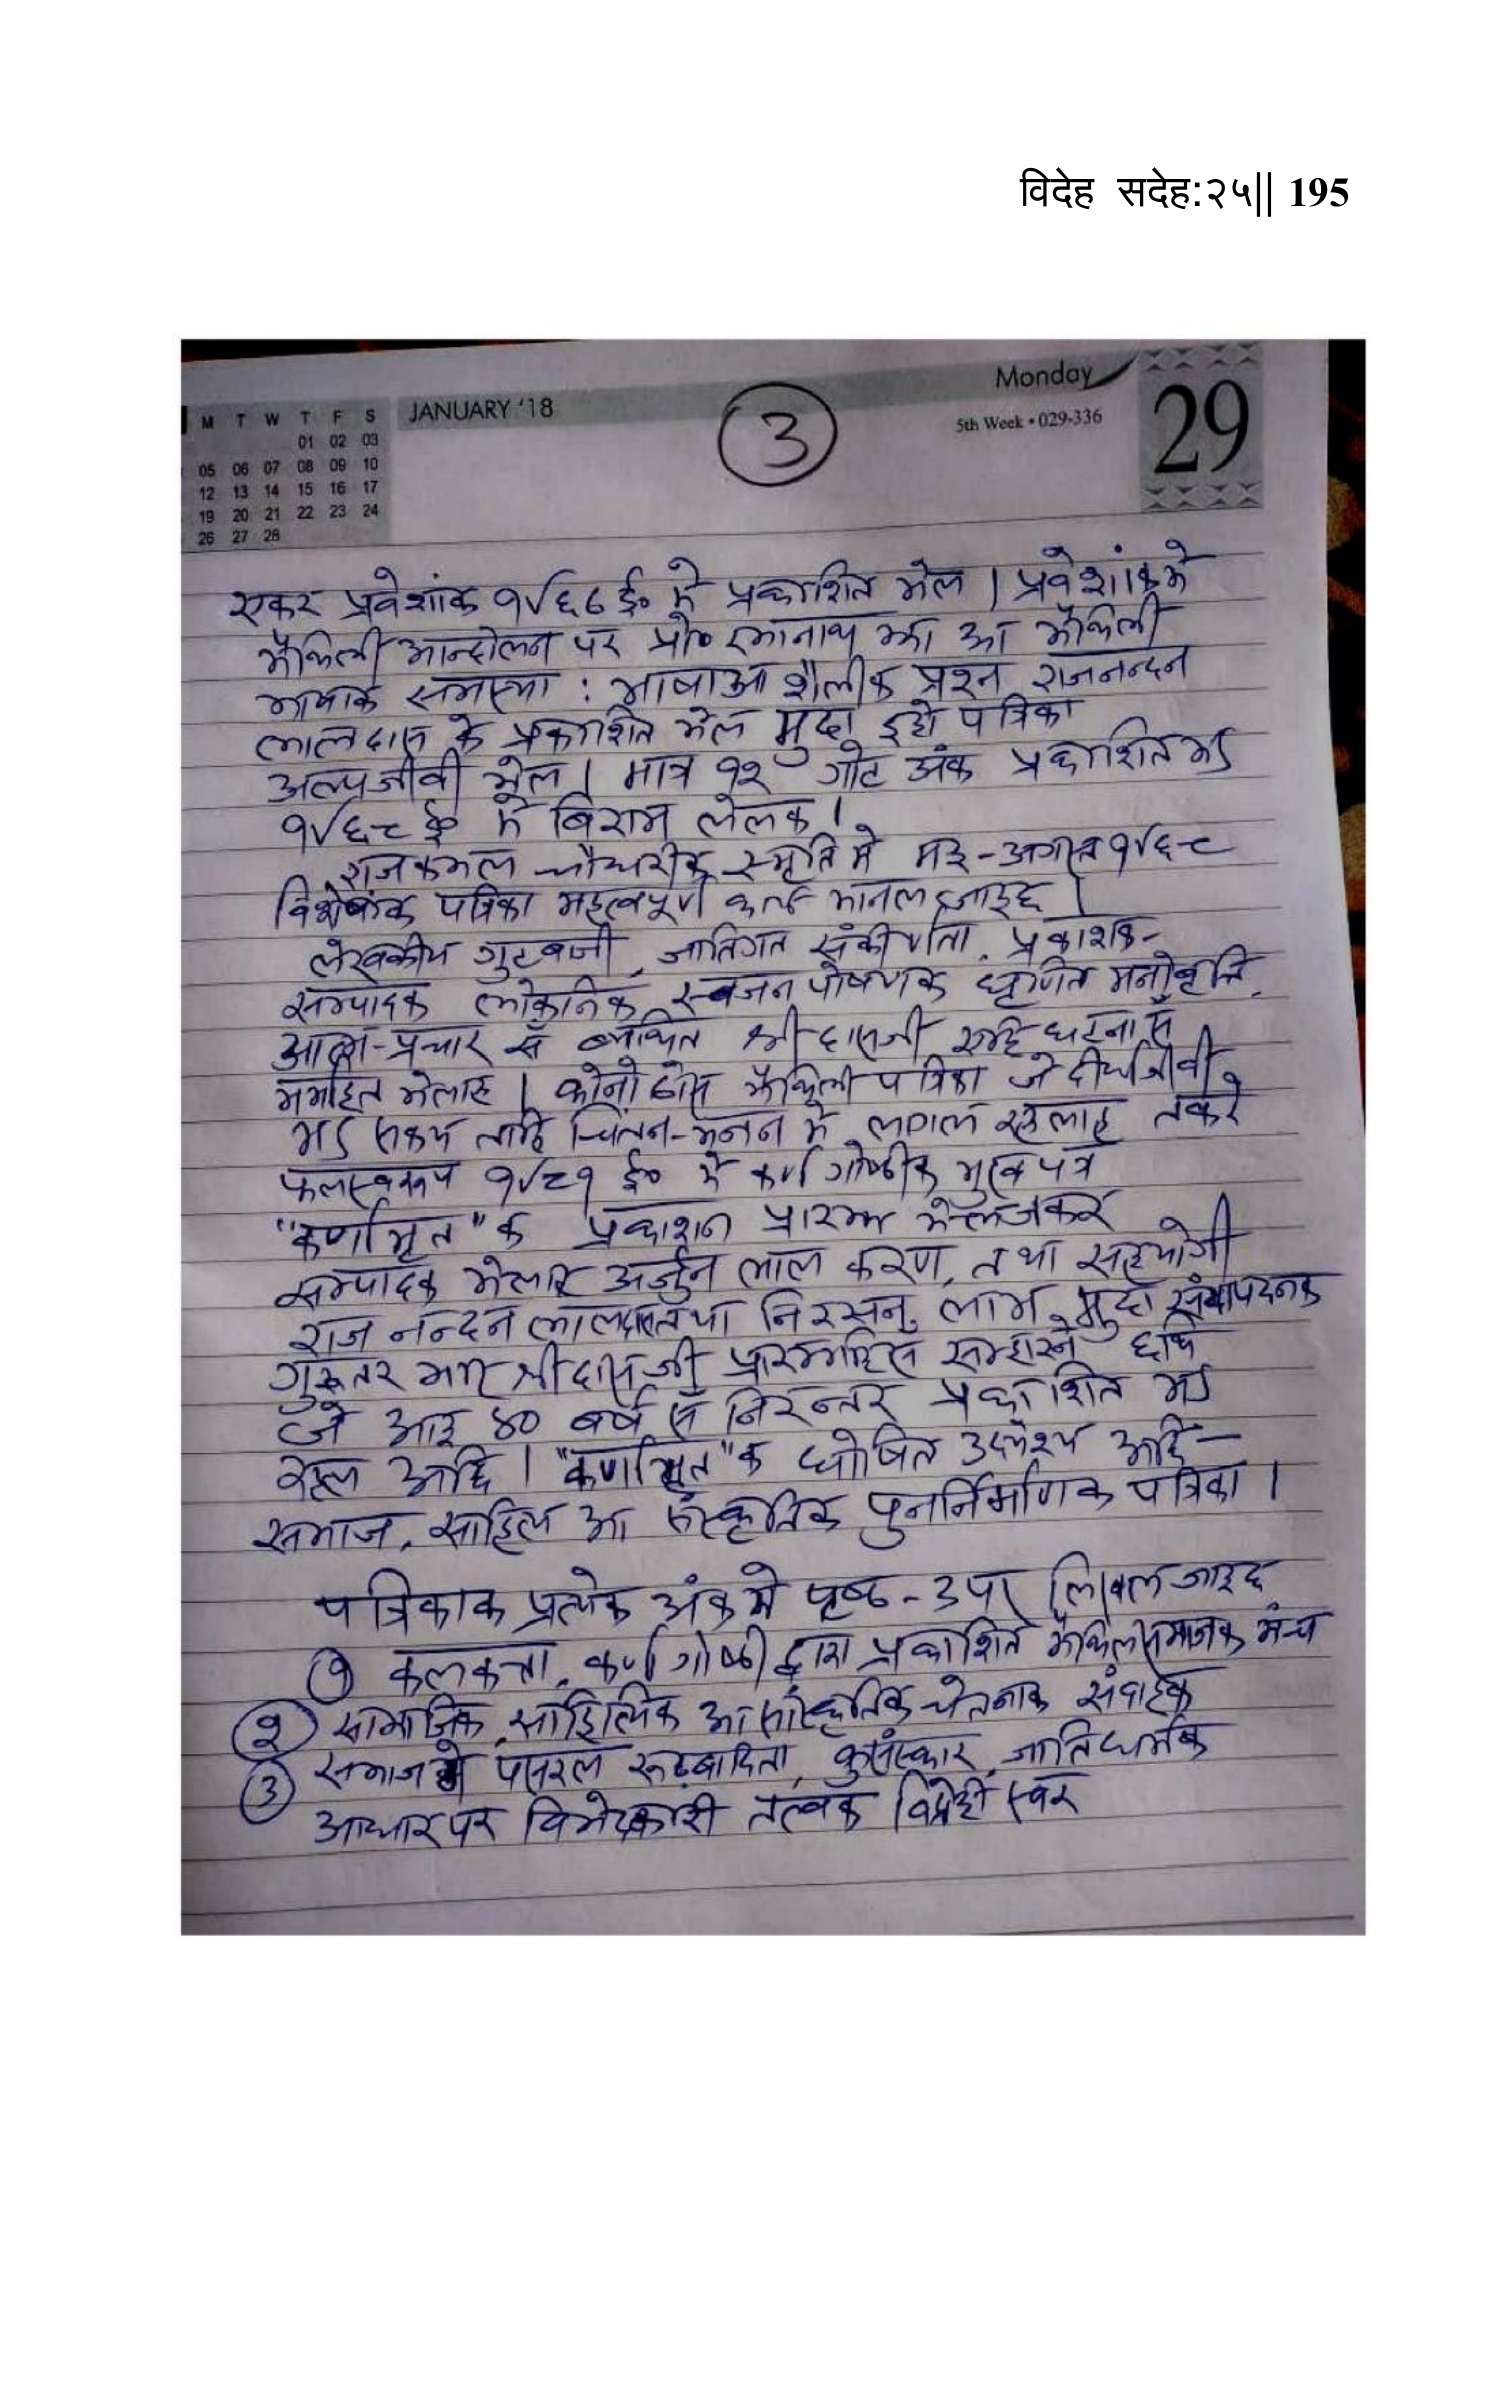 विदेह सदेह:२५|| 195
M T W T F S
JANUARY '18
Monday
29
5th Week • 029-336
3
01 02 03
05 06 07 08 09 10
12 13 14 15 16 17
19 20 21 22 23 24
26 27 28
एकर प्रवेशांक ई० मे प्रकाशित भेल । प्रवेशांकमे
मैथिली आन्दोलन पर प्रो० रमानाथ झा आ मैथिली
भाषाक समस्या : भाषाआ शैलीक प्रश्न राजनन्दन
लालदास के प्रकाशित भेल मुदा इहो पत्रिका
अल्पजीवी भेल । मात्र १२ गोट अंक प्रकाशित भऽ
१९६८ ई० मे बिराम लेलक ।
राजकमल चौधरीक स्मृति मे मइ-अगस्त १९६८
विशेषांक पत्रिका महत्वपूर्ण मानल जाइछ ।
लेखकीय गुटबाजी, जातिगत संकीर्णता, प्रकाशक-
सम्पादक लोकनिक स्वजन पोषणक घृणित मनोवृत्ति,
आत्म-प्रचार सँ व्यथित श्री दासजी एहि घटनासँ
मर्माहत भेलाह । कोनो ठोस मैथिली पत्रिका जे दीर्घजीवी
भऽ सकय ताहि चिंतन-मनन मे लागल रहलाह तकरे
फलस्वरूप १९८१ ई० मे कर्ण गोष्ठीक मुखपत्र
"कर्णामृत"क प्रकाशन प्रारम्भ भेल जकर
सम्पादक भेलाह अर्जुन लाल करण, तथा सहयोगी
राज नन्दन लालदास तथा निरसन लाभ, मुदा संपादनक
गुरूतर भार श्री दासजी प्रारम्भहिसँ सम्हारने छथि
जे आइ ४० बर्ष सँ निरन्तर प्रकाशित भऽ
रहल अछि । "कर्णामृत"क घोषित उद्देश्य अछि -
समाज, साहित्य आ संस्कृतिक पुनर्निर्माणक पत्रिका ।
पत्रिकाक प्रत्येक अंकमे पृष्ठ-३पर लिखल जाइछ
१ कलकत्ता, कर्ण गोष्ठी द्वारा प्रकाशित मैथिल समाजक मंच
२ सामाजिक, साहित्यिक आ सांस्कृतिक चेतनाक संवाहक
३ समाजमे पसरल रूढ़बादिता, कुसंस्कार, जातिधर्मक
आधार पर विभेदकारी तत्वक विद्रोही स्वर